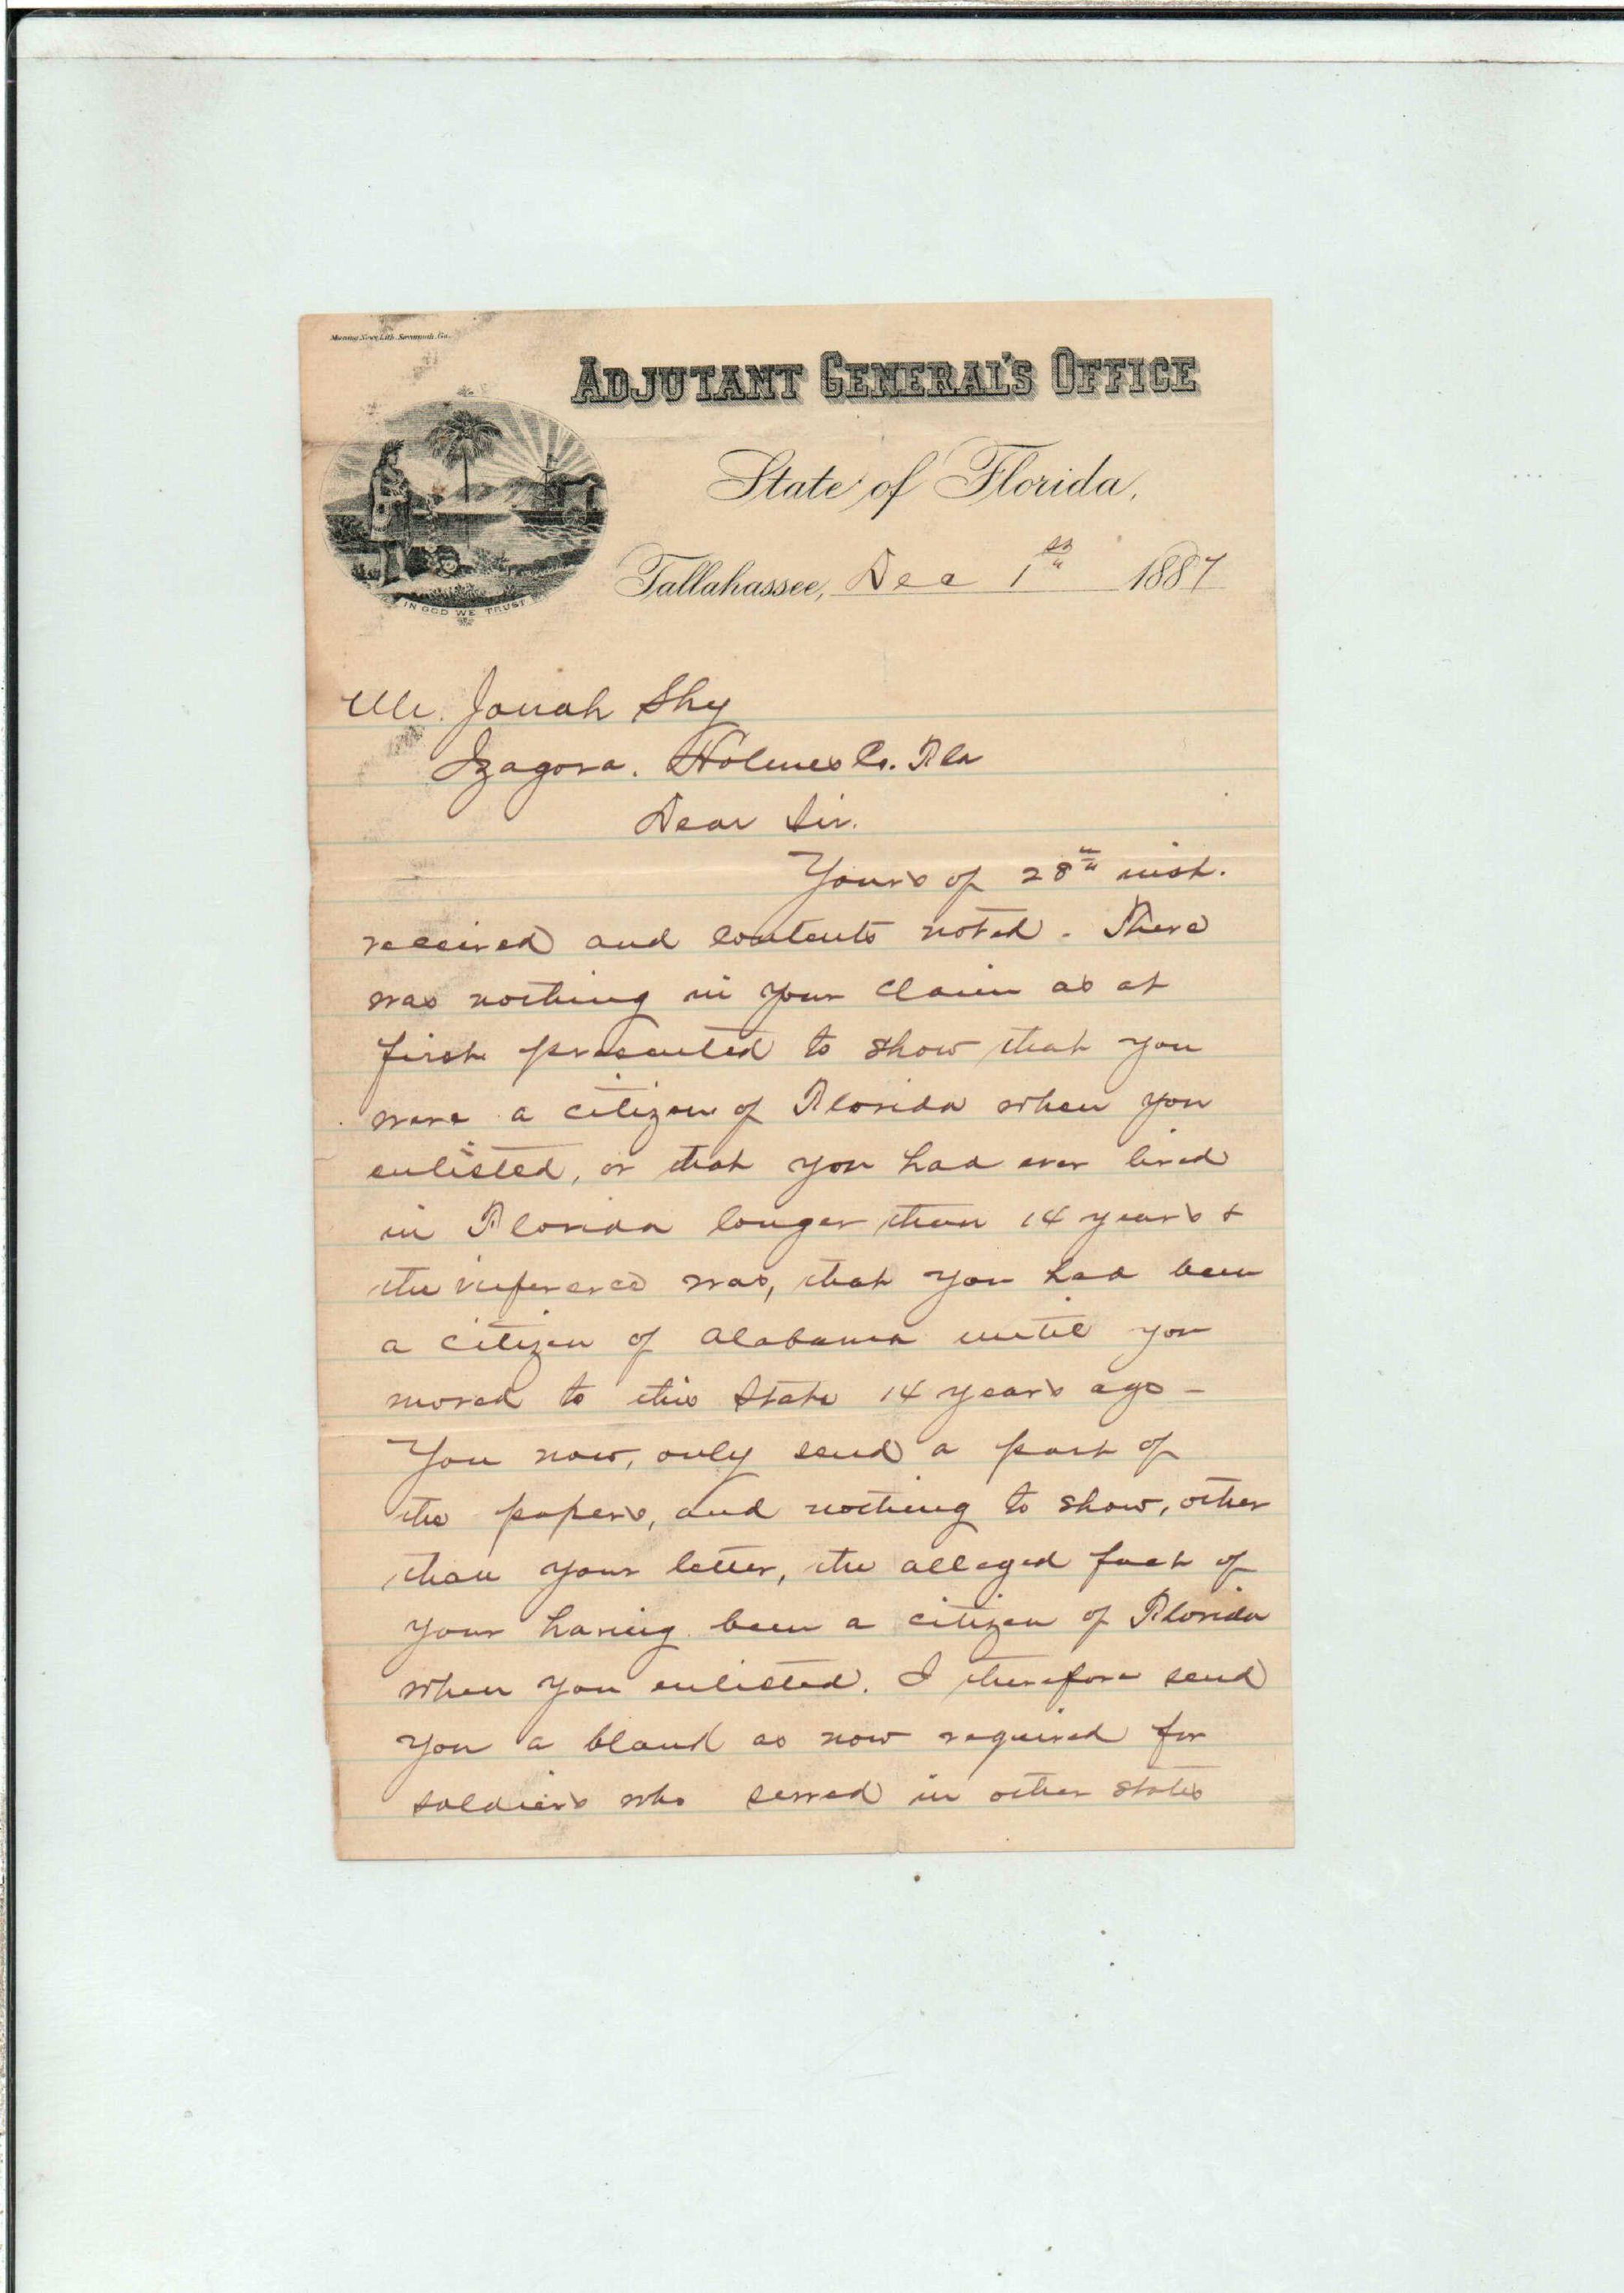 Morning News Lith. Savannah, Ga.
ADJUTANT GENERAL'S OFFICE
State of Florida,
Tallahassee, Dec 1st 1887
IN GOD WE TRUST
Mr. Jonah Shy
Izagora. Holmes Co. Fla
Dear Sir.
Yours of 28th inst.
received and contents noted. There
was nothing in your claim as at
first presented to show that you
were a citizen of Florida when you
enlisted, or that you had ever lived
in Florida longer than 14 years &
the inference was, that you had been
a citizen of Alabama until you
moved to this State 14 years ago -
You now, only send a part of
the papers, and nothing to show, other
than your letter, the alleged fact of
your having been a citizen of Florida
when you enlisted. I therefore send
you a blank as now required for
soldiers who served in other states